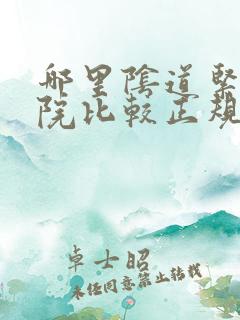 哪里阴道紧
院比较正规
卓士昭
未经同意禁止转载